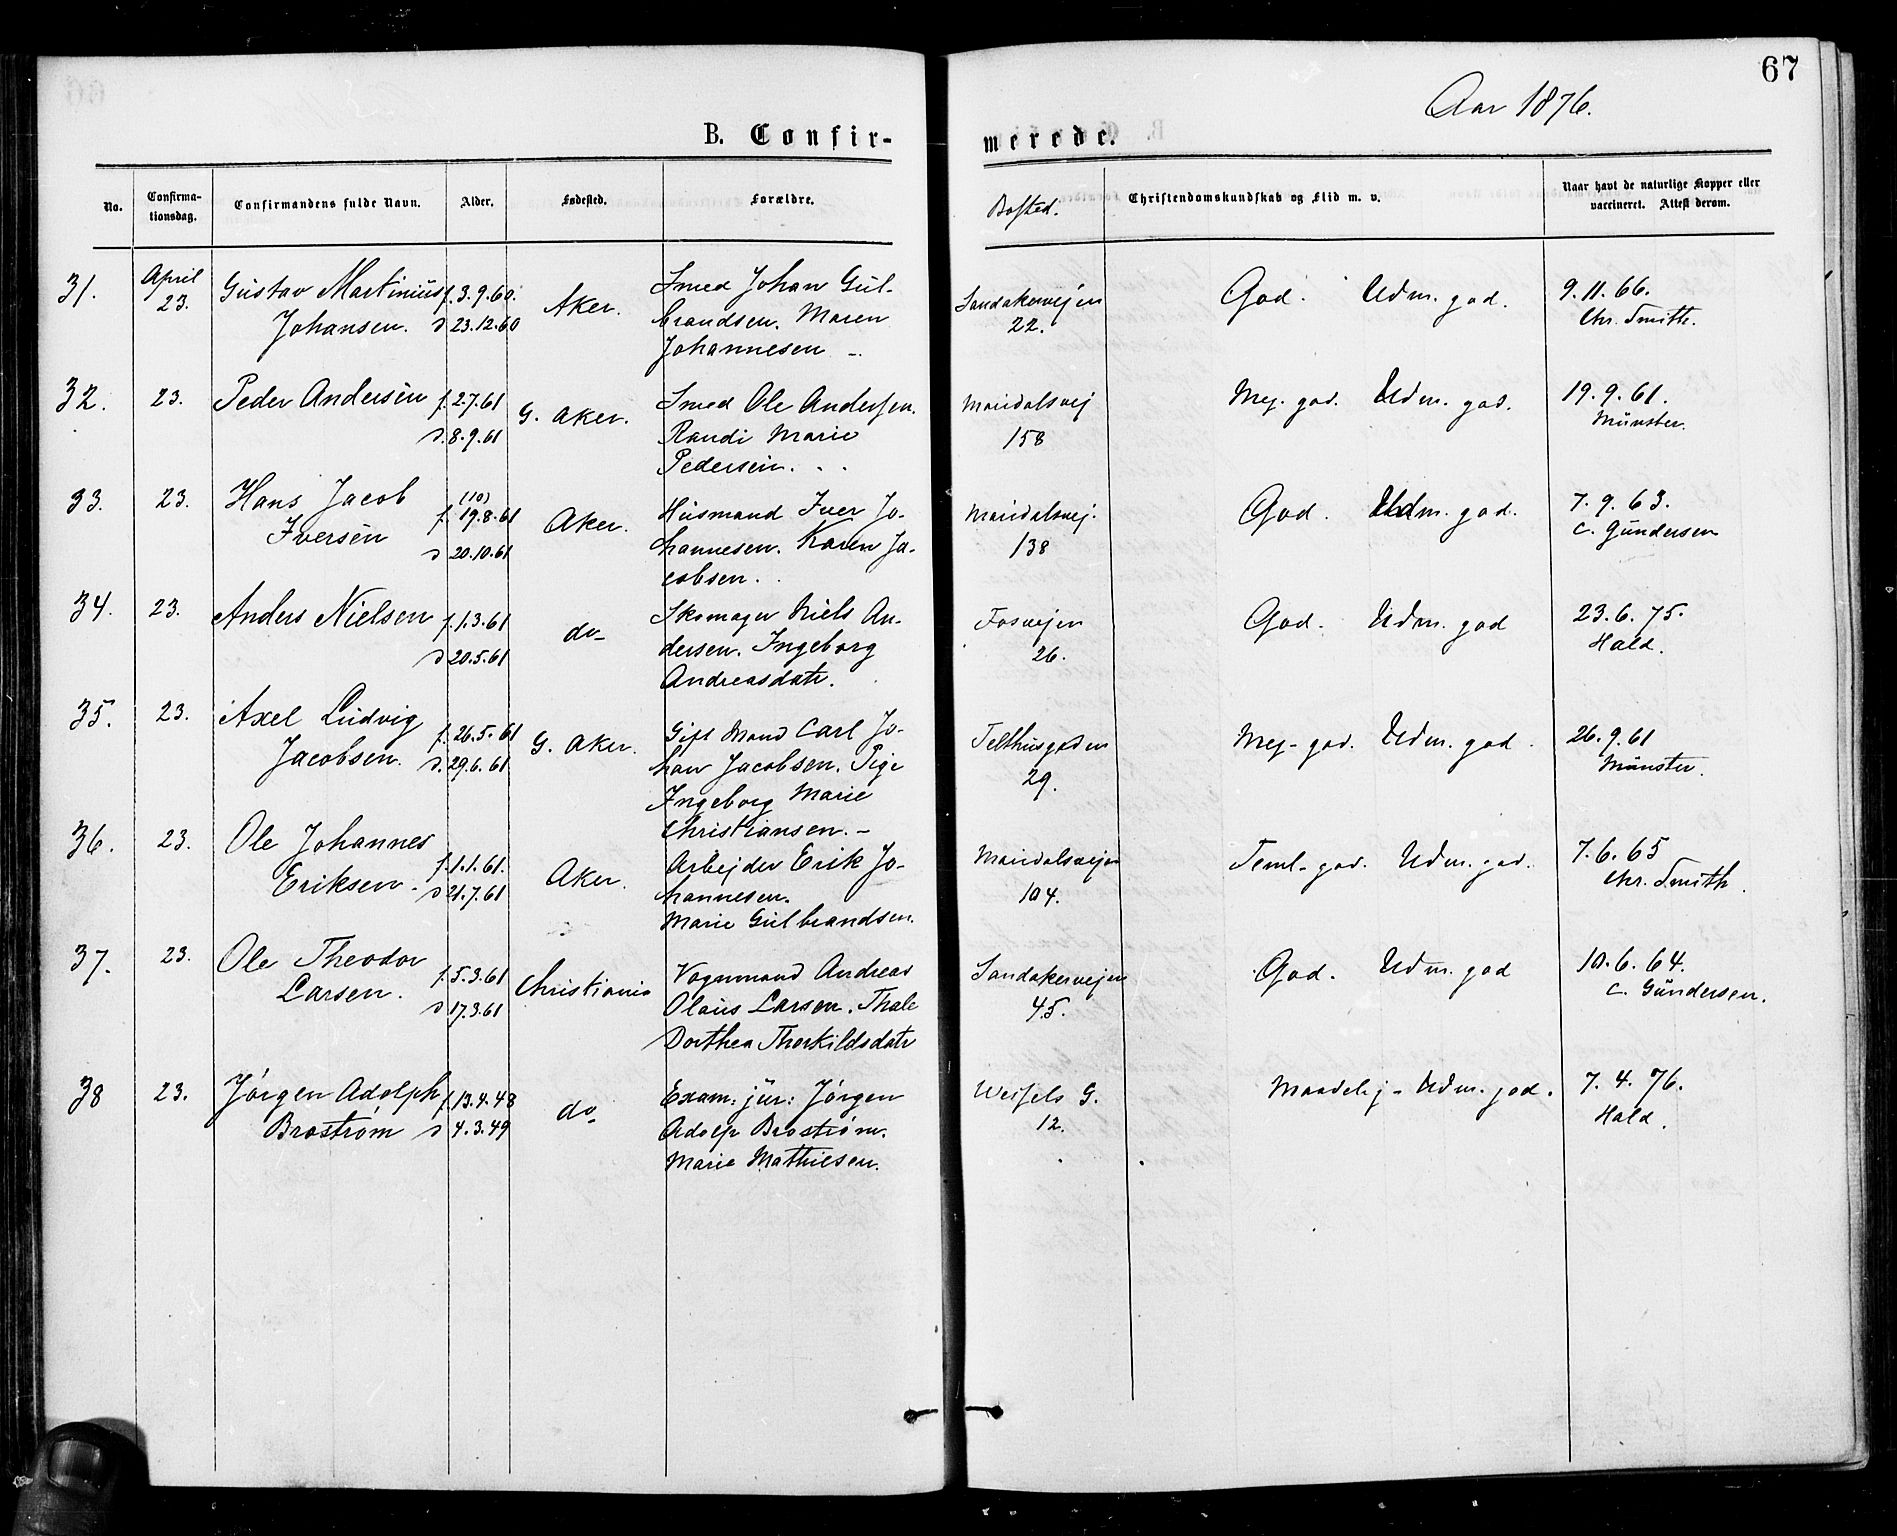 67
Aar 1876.
B. Confir-
merede.
No.
Confirma-
tionsdag.
Confirmandens fulde Navn.
Alder.
Fødested.
Forældre.
Bosted.
Christendomskundskab og Flid m. v.
Naar havt de naturlige Kopper eller
vaccineret. Attest derom.
31. April 23. Gustav Martinius Johansen. f. 3.9.60. d 23.12.60 Aker. Smed Johan Gul-
brandsen. Maren
Johannesen
Sandakervejen 22. God. Udm. god. 9.11.66. Chr. Smith.
32. 23. Peder Andersen f. 2.7.61 d. 8.9.61 G. Aker. Smed Ole Andersen.
Randi Marie
Pedersen.
Maridalsvej 158 Meg. god. Udm. god. 19.9.61. Münster.
33. 23. Hans Jacob Iversen (10) f. 19.8.61 d 20.10.61 Aker. Husmand Iver Jo-
hannesen. Karen Ja-
cobsen.
Maridalsvej. 138 God. Udm. god. 7.9.63. C. Gundersen
34. 23. Anders Nielsen f. 1.3.61 d 20.5.61 do Skomager Niels An-
dersen. Ingeborg
Andreasdatr.
Fosvejen 26. God. Udm. god 23.6.75. Hald.
35. 23. Axel Ludvig Jacobsen. f. 26.5.61 d. 29.6.61 G. Aker. Gift Mand Carl Jo-
han Jacobsen. Pige
Ingeborg Marie
Christiansen. -
Telthusgaden 29. Meg- god. Udm. god. 26.9.61 Münster.
36. 23. Ole Johannes Eriksen. f. 1.1.61. d 21.7.61 Aker. Arbejder Erik Jo-
hannesen.
Marie Gulbrandsen.
Maridalsvejen 104. Teml- god. Udm. god. 7.6.65 Chr. Smith.
37. 23. Ole Theodor Larsen. f. 5.3.61 d 17.3.61 Christiania Vognmand Andreas
Olaus Larsen. Thale
Dorthea Thorkildsdatr
Sandakervejen 45. God. Udm. god 10.6.64. C. Gundersen.
38 23. Jørgen Adolph Brostrøm f. 13.4.48 d 4.3.49 do Exam: jur: Jørgen
Adolp Brostrøm.
Marie Mathiesen.
Wessels G. 12. Maadelig - Udm. god. 7.4.76. Hald.